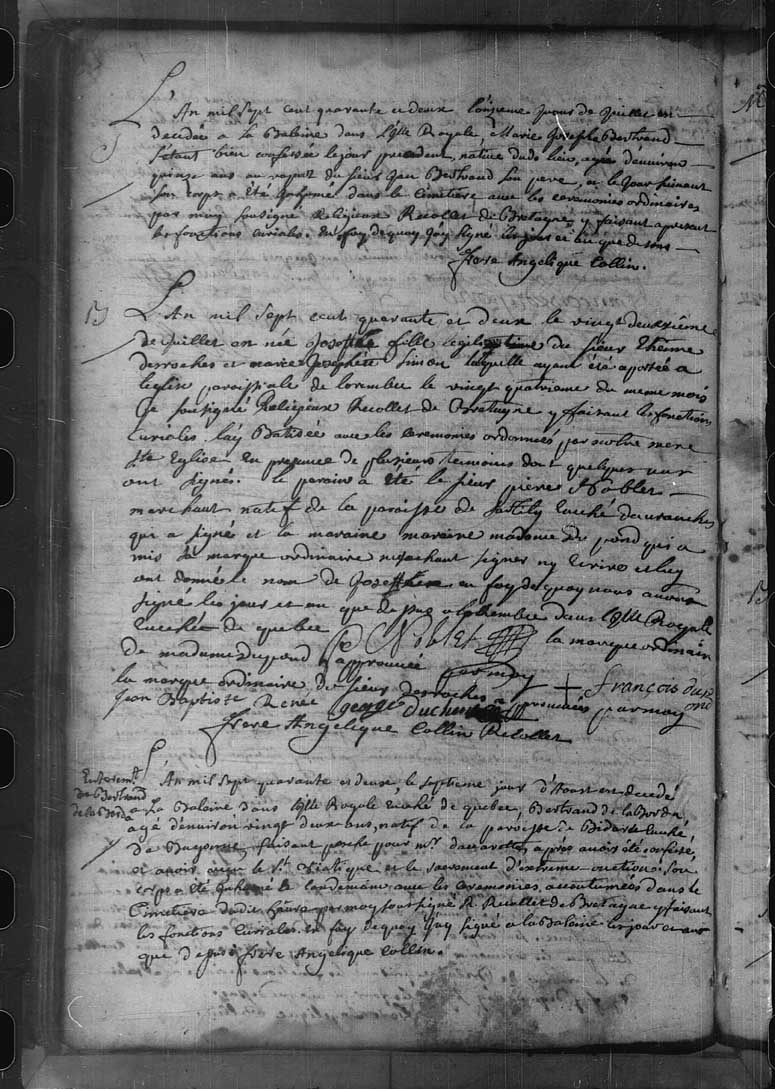 L'An mil Sept cent quarante et deux l'onzieme jour de juillet est
decedée a La Baleine dans L'isle Royale, Marie Josephe Bertrand
s'étant bien confessée le jour precedent, native dudit lieu, agée d'environ
quinze ans au raport du sieur Jean Bertrand son pere, et le jour suivant
son corps a été Inhumé dans le cimetiere avec les ceremonies ordinaires
par moy soussigné Religieux Recollet de Bretagne, y faisant apresent
les fonctions curiales. En foy de quoy j'ay signé les jour et an que dessus
frere Angelique Collin.
L'An mil sept cent quarante et deux le vingt deuxième
de juillet est née Josephe fille legitime du sieur Etienne
desroches et marie Josephe simon laquelle ayant été aportée a
leglise paroissiale de lorembec le vingt quatrieme du meme mois
Je soussigné Religieux Recollet de Bretagne y faisant les fonctions
curiales lay Batisée avec les ceremonies ordonnées par nostre mere
Ste Eglise En presence de plusieurs temoins dont quelques uns
ont signés. le parain a été le sieur piere Noblet
marchant natif de la paroisse de Evché davranches
qui a signé et la maraine maraine madame du pond qui a
mis sa marque ordinaire ne sachant signer ny Ecrire et luy
ont donné le nom de Josephe en foy de quoy nous avons
signé les jours et an que de sus a lorembec dans l'isle Royalle
Evechée de quebec P Noblet la marque ordinaire
de madame dupond approuvée par moy + François dupond
la marque ordinaire du sieur desroches approuvée par moy
Jean Baptiste Renée George Duchene
frere Angelique Collin Recollet
Enteremt
de Bertrand
de la Borda
L'An mil sept quarante et deux, le septieme jour d'Aoust est decedé
a La Baleine dans l'isle Royale Evché de quebec, Bertrand de laBorda,
agé d'environ vingt deux ans, natif de la paroisse de Bidart Evché
de Bayonne, faisant pesche pour mr daccarrette, après avoir été confessé,
et avoir reçu le St Viatique et le sacrement d'extreme-onction. Son
corps a été Inhumé le lendemain avec les ceremonies accoutumées dans le
Cimetiere dudit havre par moy sous signé R. Recollet de Bretagne y faisant
les fonctions Curiales. En foy de quoy j'ay signé a la Baleine les jour et an
que dessus frere Angelique Collin.